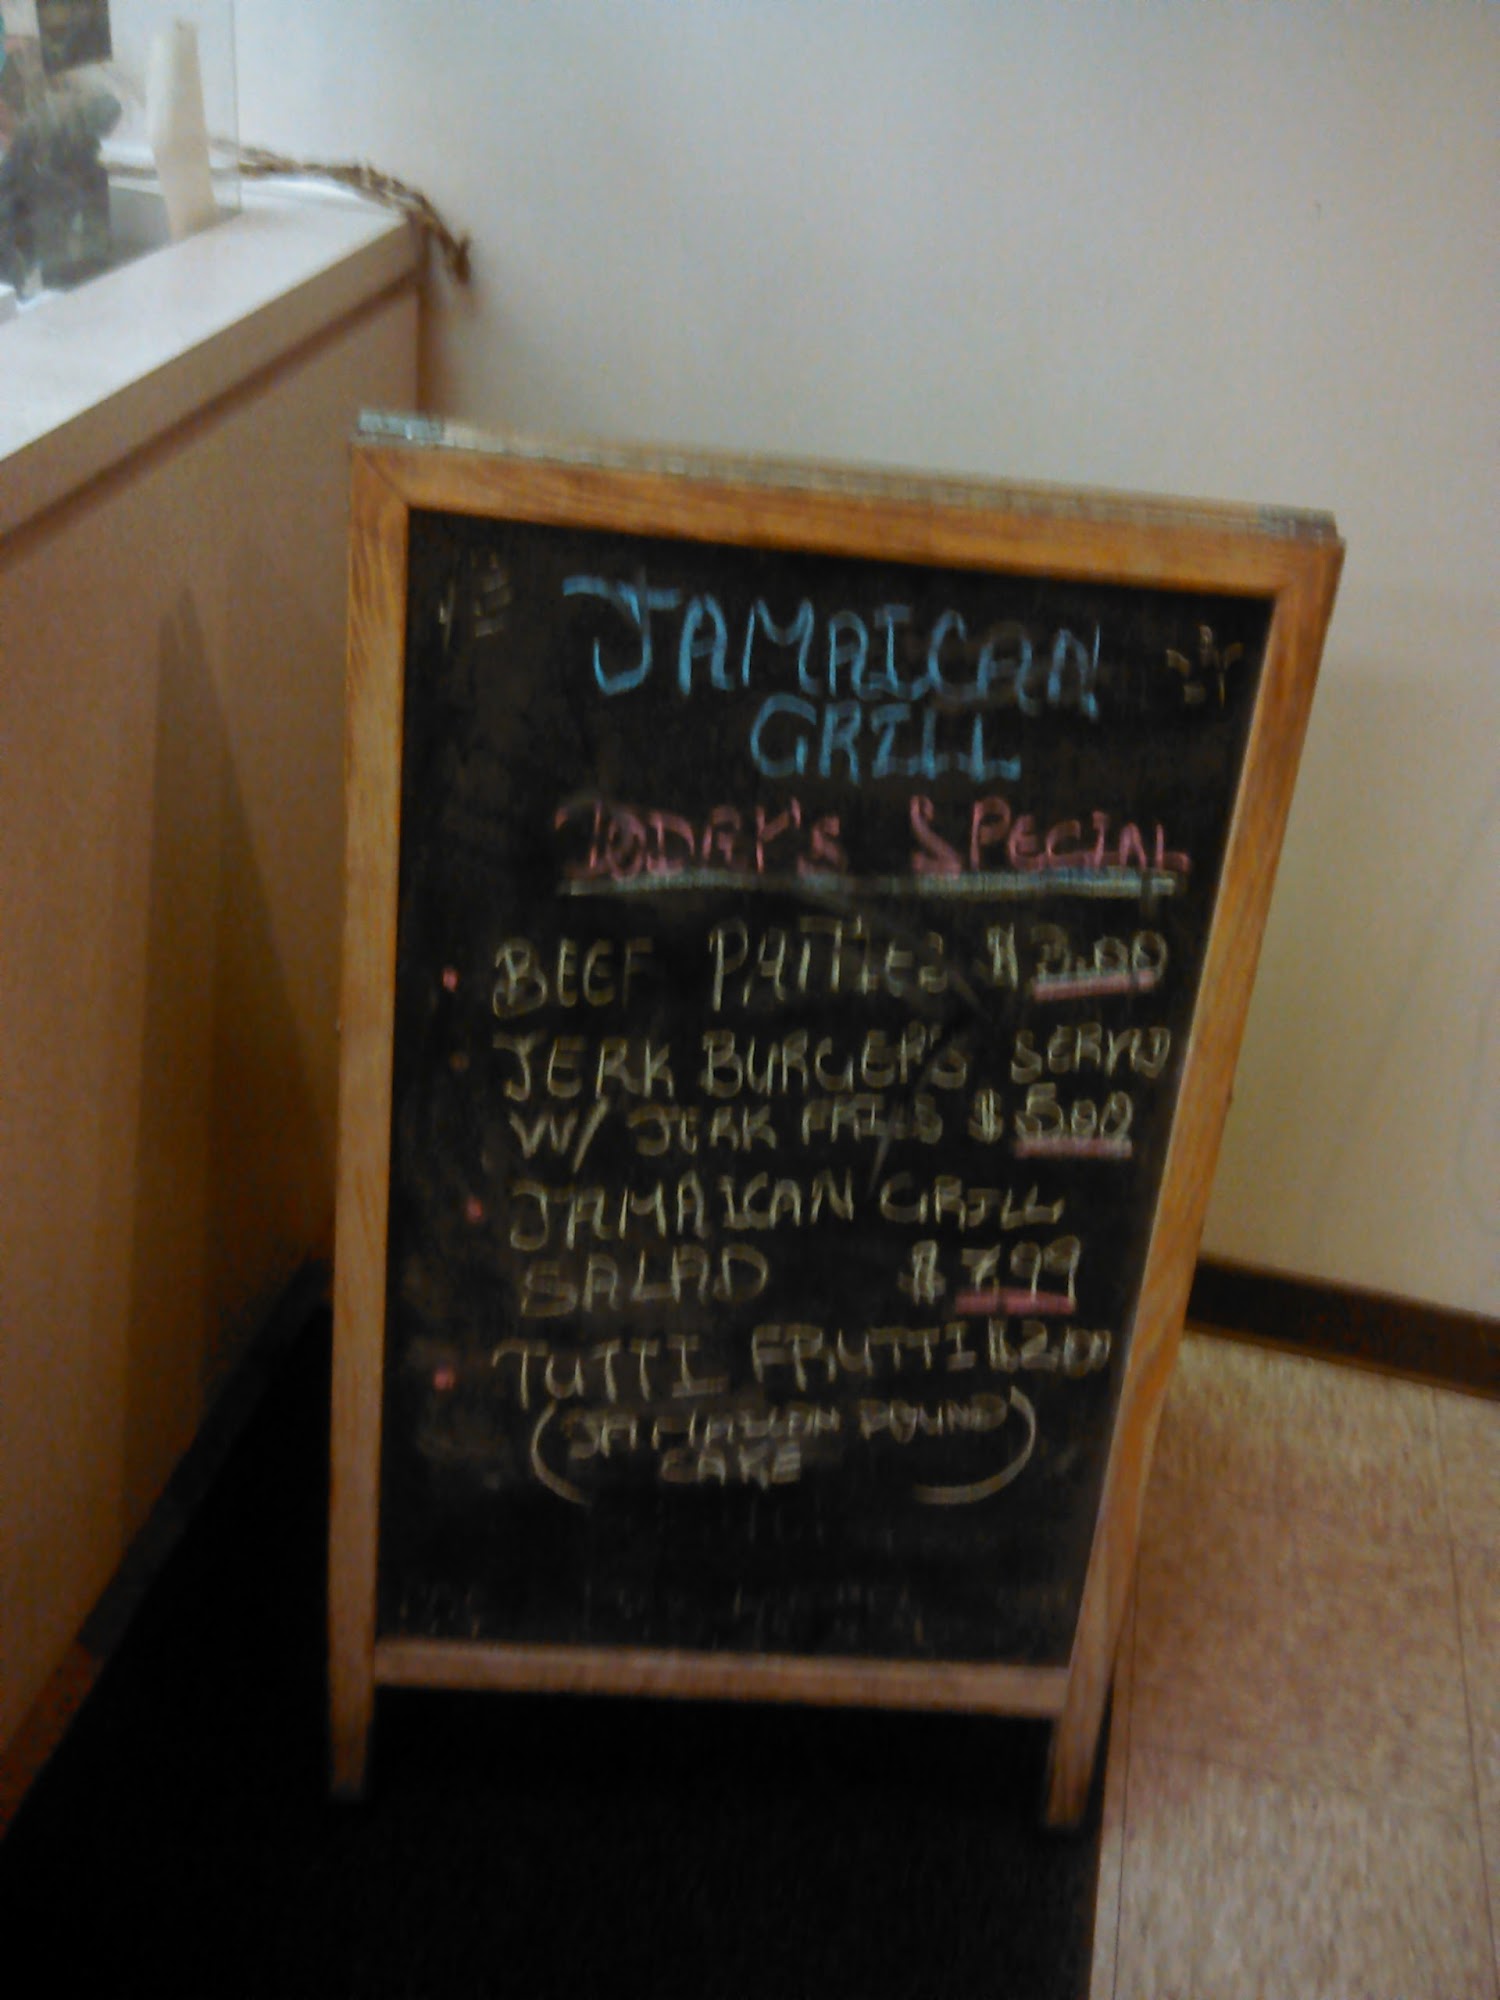 JAMAICAN
GRILL
TODAY'S SPECIAL
BEEF PATTIES $3.00
JERK BURGER'S SERVED
W/ JERK FRIES $5.00
JAMAICAN GRILL
SALAD $7.99
TUTTI FRUTTI $2.00
(JAMAICAN POUND
CAKE)